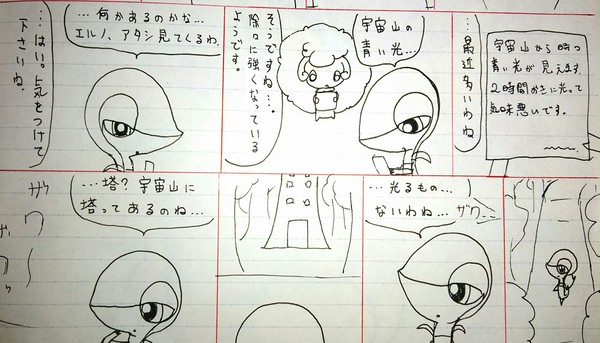 宇宙山から時々
青い光が見えます。
2時間おきに光って
気味悪いです。
…最近多いわね
宇宙山の
青い光…
そうですね…。
除々に強くなっている
ようです。
…何かあるのかな…
エルノ、アタシ見てくるわ。
…はい。気をつけて
下さいね。
…光るもの…
ないわね…ザワ…
…塔?宇宙山に
塔ってあるのね…
ザワ